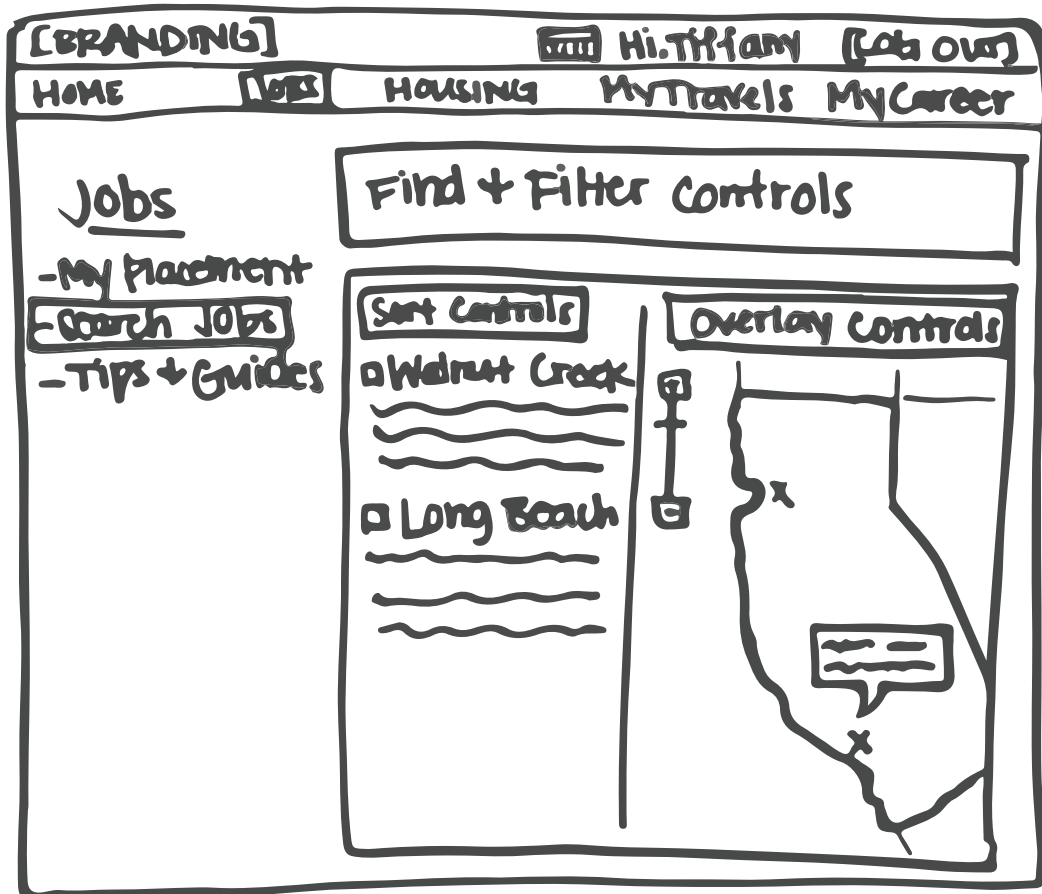 [BRANDING] Hi. Tiffany [Log Out]
HOME Jobs HOUSING MyTravels MyCareer
Jobs
- My Placement
- Search Jobs
- Tips + Guides
Find + Filter Controls
Sort Controls
Walnut Creek
Long Beach
Overlay Controls